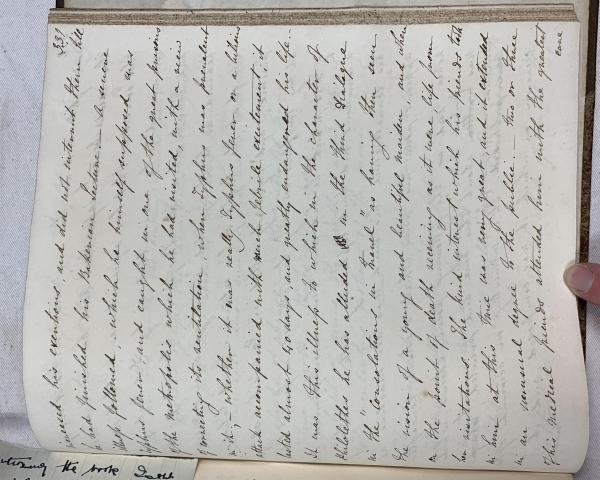 331
newed his exertions, and did not intermit them till
he had finished his Bakerian lecture – A severe
illness followed, which he himself supposed was
typhus fever and caught in one of the great prisons
of the metropolis which he had visited, with a view
of correcting its ventilation, when typhus was prevalent
in it; – whether it was really typhus fever or a bilious
attack accompanied with much febrile excitement, it
lasted almost 40 days, and greatly endangered his life.
It was this illness to which in the character of
Philalethes he has alluded in the third dialogue
in the "Consolations in Travel" as having then seen
the vision of a young and beautiful maiden, and when
on the point of death receiving as it were, life from
her visitations. The kind interest which his friends took
in him at this time was very great, and it extended
in an unusual degree to the public: – two or three
of his medical friends attended him with the greatest
care
the book